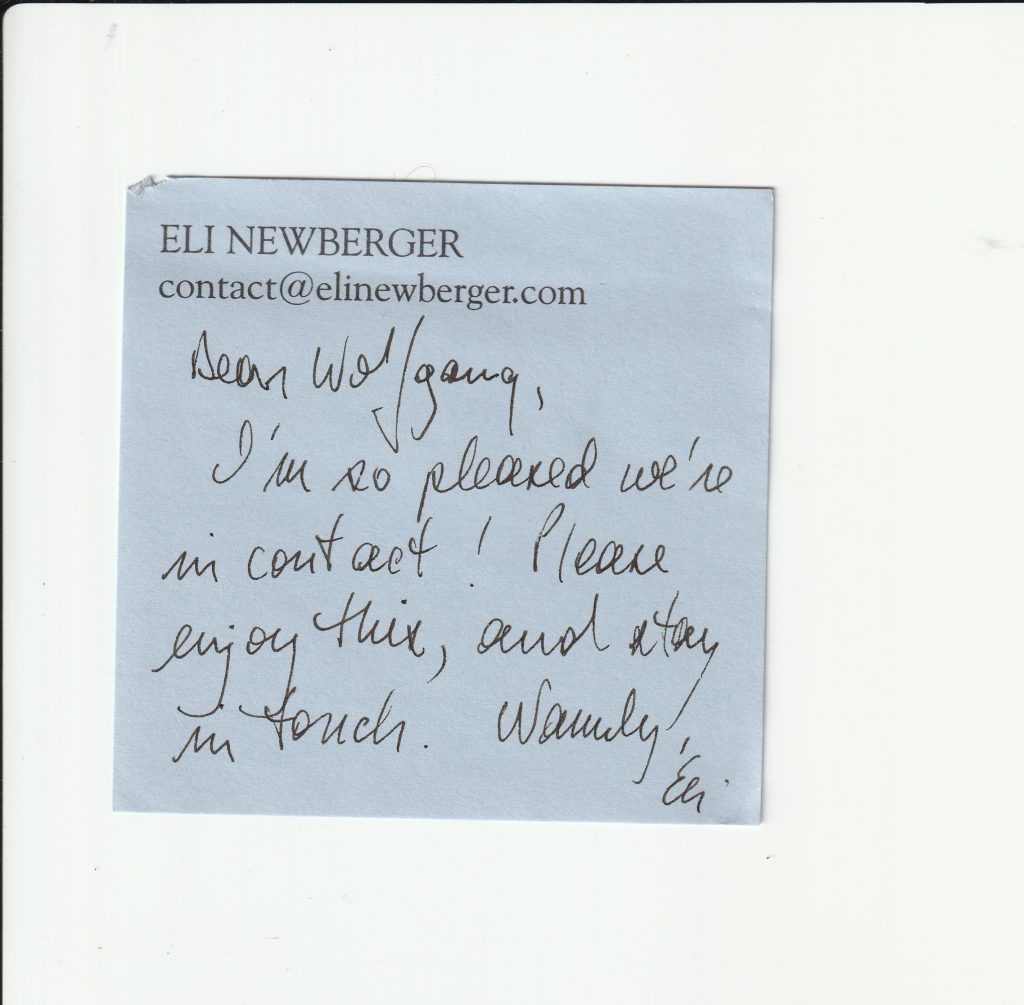 ELI NEWBERGER
contact@elinewberger.com
Dear Wolfgang,
I'm so pleased we're
in contact! Please
enjoy this, and stay
in touch. Warmly,
Eli